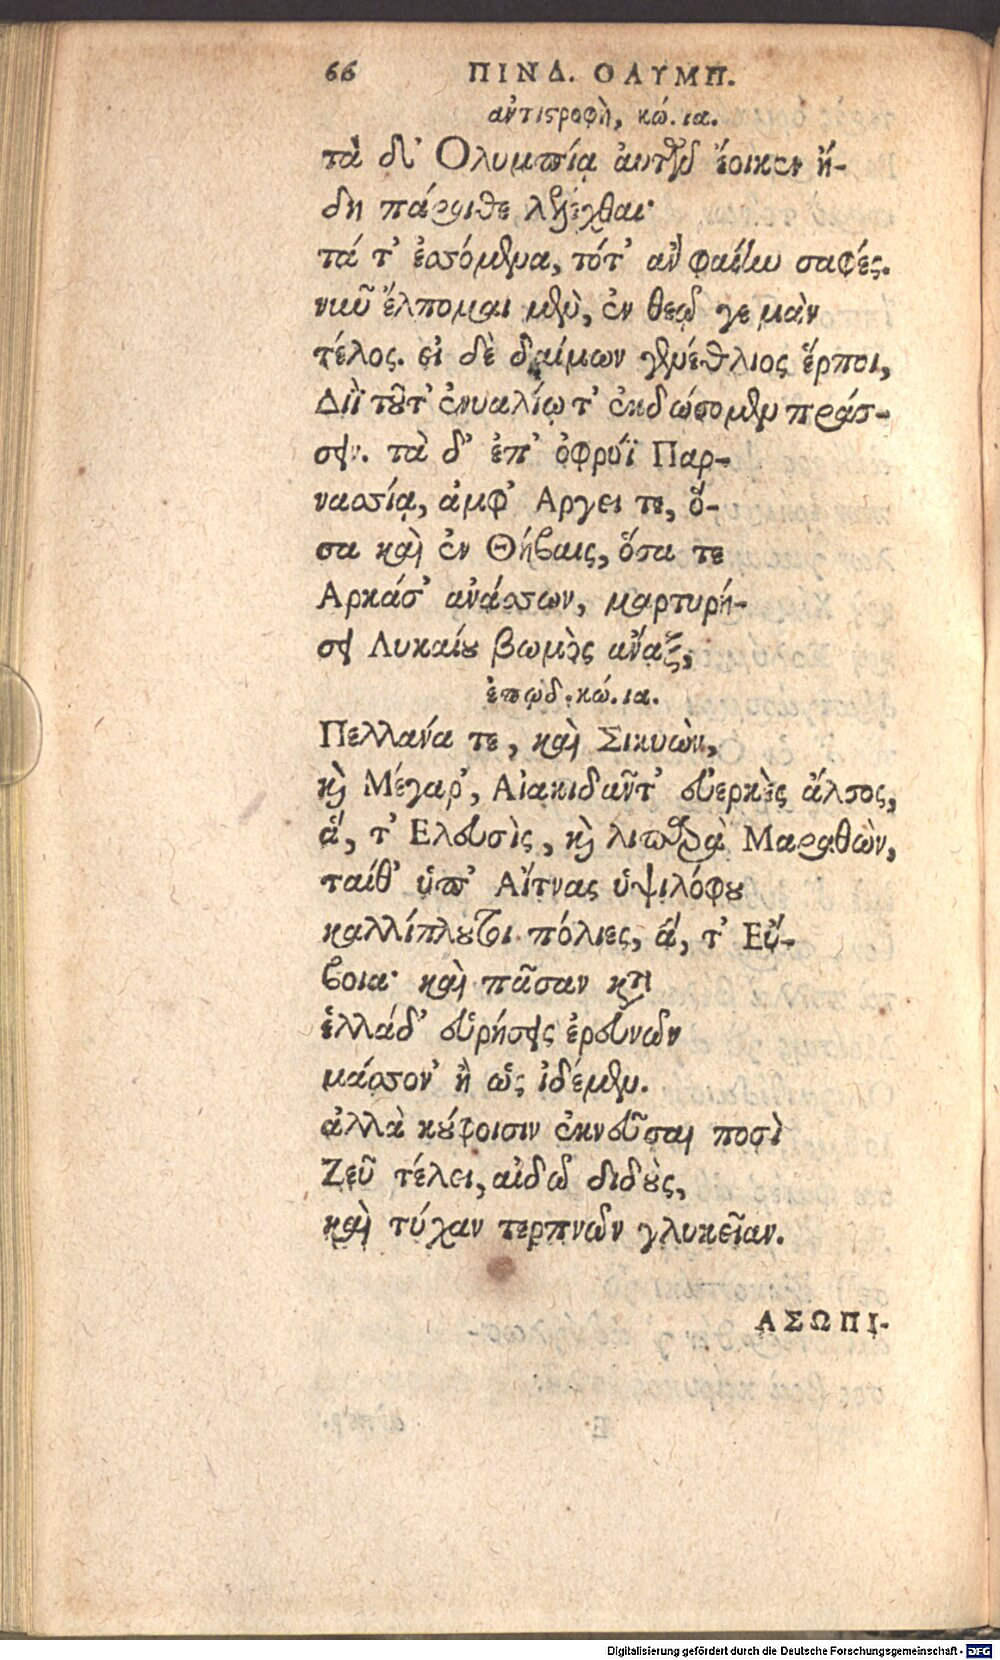 66 ΠΙΝΔ. ΟΛΥΜΠ.
ἀντιστροφὴ, κώ. ια.
τὰ δ' Ολυμπίᾳ αὐτῶν ἔοικεν ἤ-
δη πάροιθε λελέχθαι·
τά τ' ἐσσόμενα, τότ' ἂν φαίην σαφές.
νῦν ἔλπομαι μὲν, ἐν θεῷ γε μὰν
τέλος. εἰ δὲ δαίμων γενέθλιος ἕρποι,
Διῒ τοῦτ' ἐνυαλίῳ τ' ἐκδώσομεν πράσ-
σειν. τὰ δ' ἐπ' ὀφρύϊ Παρ-
νασσίᾳ, ἀμφ' Αργει τε, ὅ-
σα καὶ ἐν Θήβαις, ὅσα τε
Αρκάσ' ἀνάσσων, μαρτυρή-
σει Λυκαίου βωμὸς ἄναξ,
ἐπῳδ. κώ. ια.
Πελλάνα τε, καὶ Σικυὼν,
καὶ Μέγαρ', Αἰακιδᾶντ' εὐερκὲς ἄλσος,
ἅ, τ' Ελευσὶς, καὶ λιπαρὰ Μαραθὼν,
ταίθ' ὑπ' Αἴτνας ὑψιλόφου
καλλίπλουτοι πόλιες, ἅ, τ' Εὔ-
βοια· καὶ πᾶσαν κατὰ
ἑλλάδ' εὑρήσεις ἐρευνῶν
μάσσον' ἢ ὡς ἰδέμεν.
ἀλλὰ κούφοισιν ἐκνεῦσαι ποσὶ
Ζεῦ τέλει, αἰδῶ διδοὺς,
καὶ τύχαν τερπνῶν γλυκεῖαν.
ΑΣΩΠΙ-
Digitalisierung gefördert durch die Deutsche Forschungsgemeinschaft - DFG